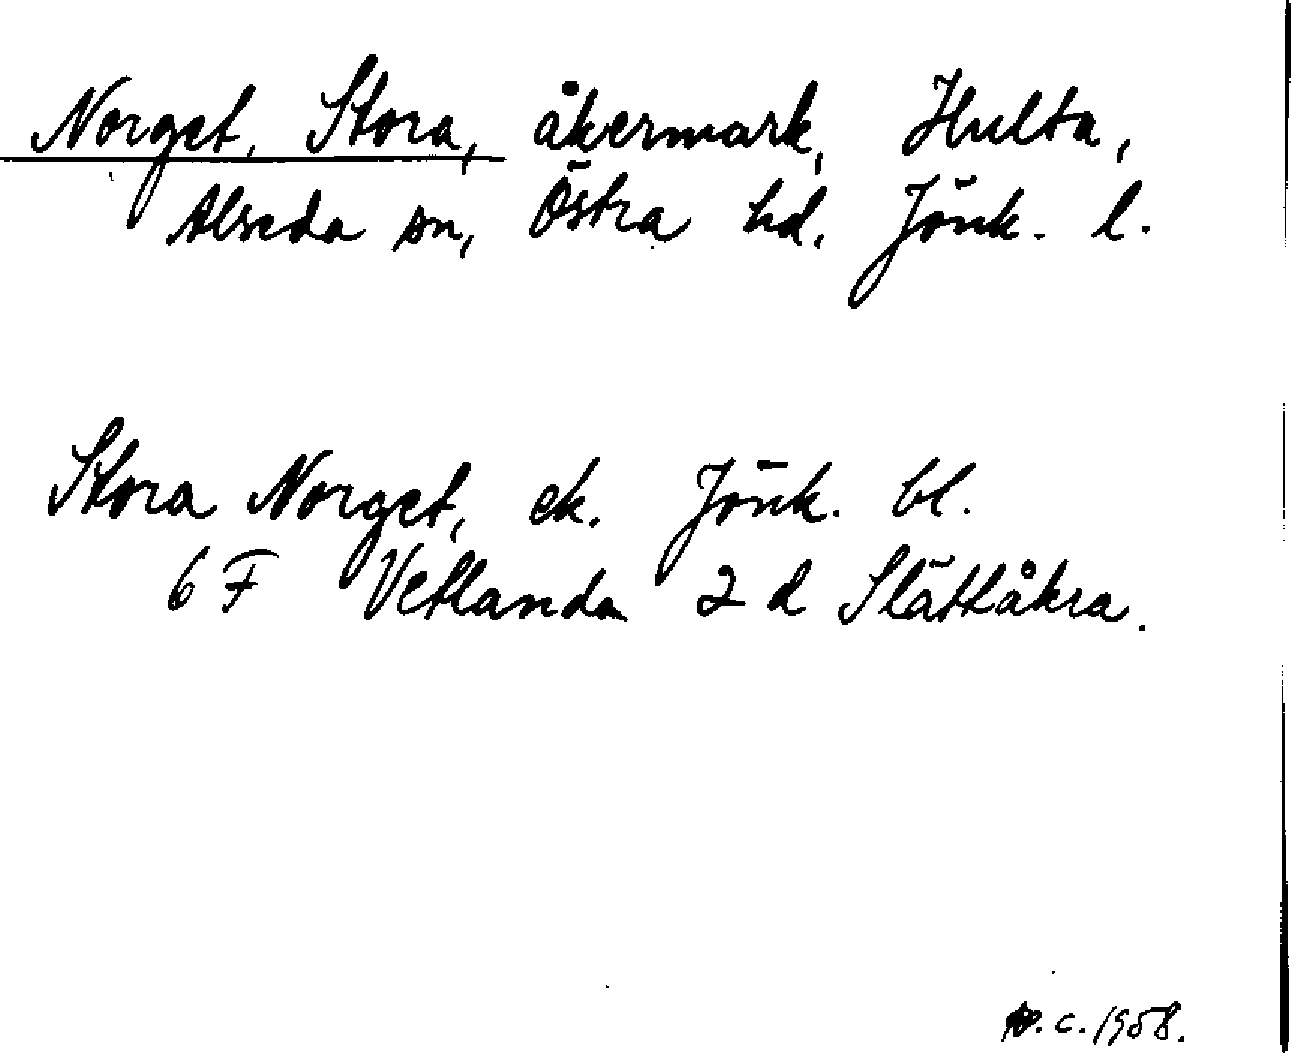 Norget, Stora, åkermark, Hulta,
Alseda sn, Östra hd. Jönk. l.
Stora Norget, ek. Jönk. bl.
6 F Vetlanda 2 d Slättåkra.
c. 1958.